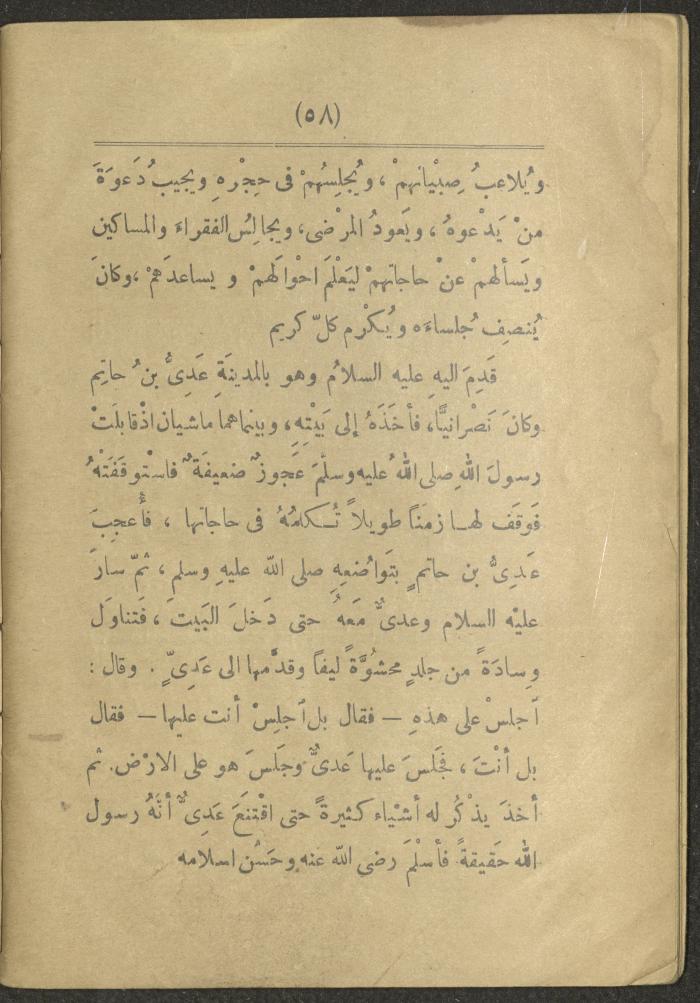 (٥٨)
ويُلاعبُ صِبْيانهمْ ، ويُجلِسُهمْ فى حِجْرهِ ويجيبُ دَعوَةَ
منْ يَدْعوهُ ، ويَعودُ المرْضى، ويجالِسُ الفقراءَ والمساكين
ويَسألهمْ عنْ حاجاتهمْ ليَعْلمَ احْوالَهمْ و يساعدَهمْ ،وكانَ
يُنصِف جُلساءَه ويُكرْم كلّ كريم
قَدِمَ اليهِ عليه السلامُ وهو بالمدينَةِ عَدِىُّ بنُ حاتِم
وكانَ نَصْرانيًّا، فأخَذَهُ إلى بَيْتِهِ، وبينماهما ماشيان اذْقابلَتْ
رسولَ اللهِ صلى اللهُ عليه وسلَّمَ عَجوزٌ ضعيفَةٌ فاسْتوقَفَتْهُ
فَوقَف لهـا زمنَاً طويلاً تُـكلمُهُ فى حاجاتها ، فأُعجِبَ
عَدِىُّ بن حاتمٍ بتَواضُعِهِ صلى اللّه عليهِ وسلم ، ثمّ سارَ
عليْه السلام وعدىٌّ مَعهُ حتى دَخلَ البَيتَ ، فَتناوَل
وِسادَةً من جلدٍ محشُوَّةً ليفَاً وقدَّمها الى عَدِىّ ٍ . وقال :
اَجلسْ على هذهِ — فقال بل اَجلِسْ أنت عليها — فقال
بل أنْتَ ، فجَلسَ عليها عَدىٌّ وجَلَسَ هو على الارْض. ثم
أخذَ يذْكُر له أشْياء كثيرةً حتى اقْتنَعَ عَدِىٌّ أنَّهُ رسول
اللّه حَقيقةً فأسْلمَ رضى اللّه عنه وحَسُن اسلامه